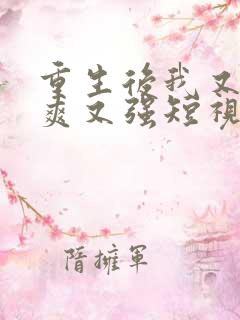 重生後我又
爽又强短視
隋擁軍